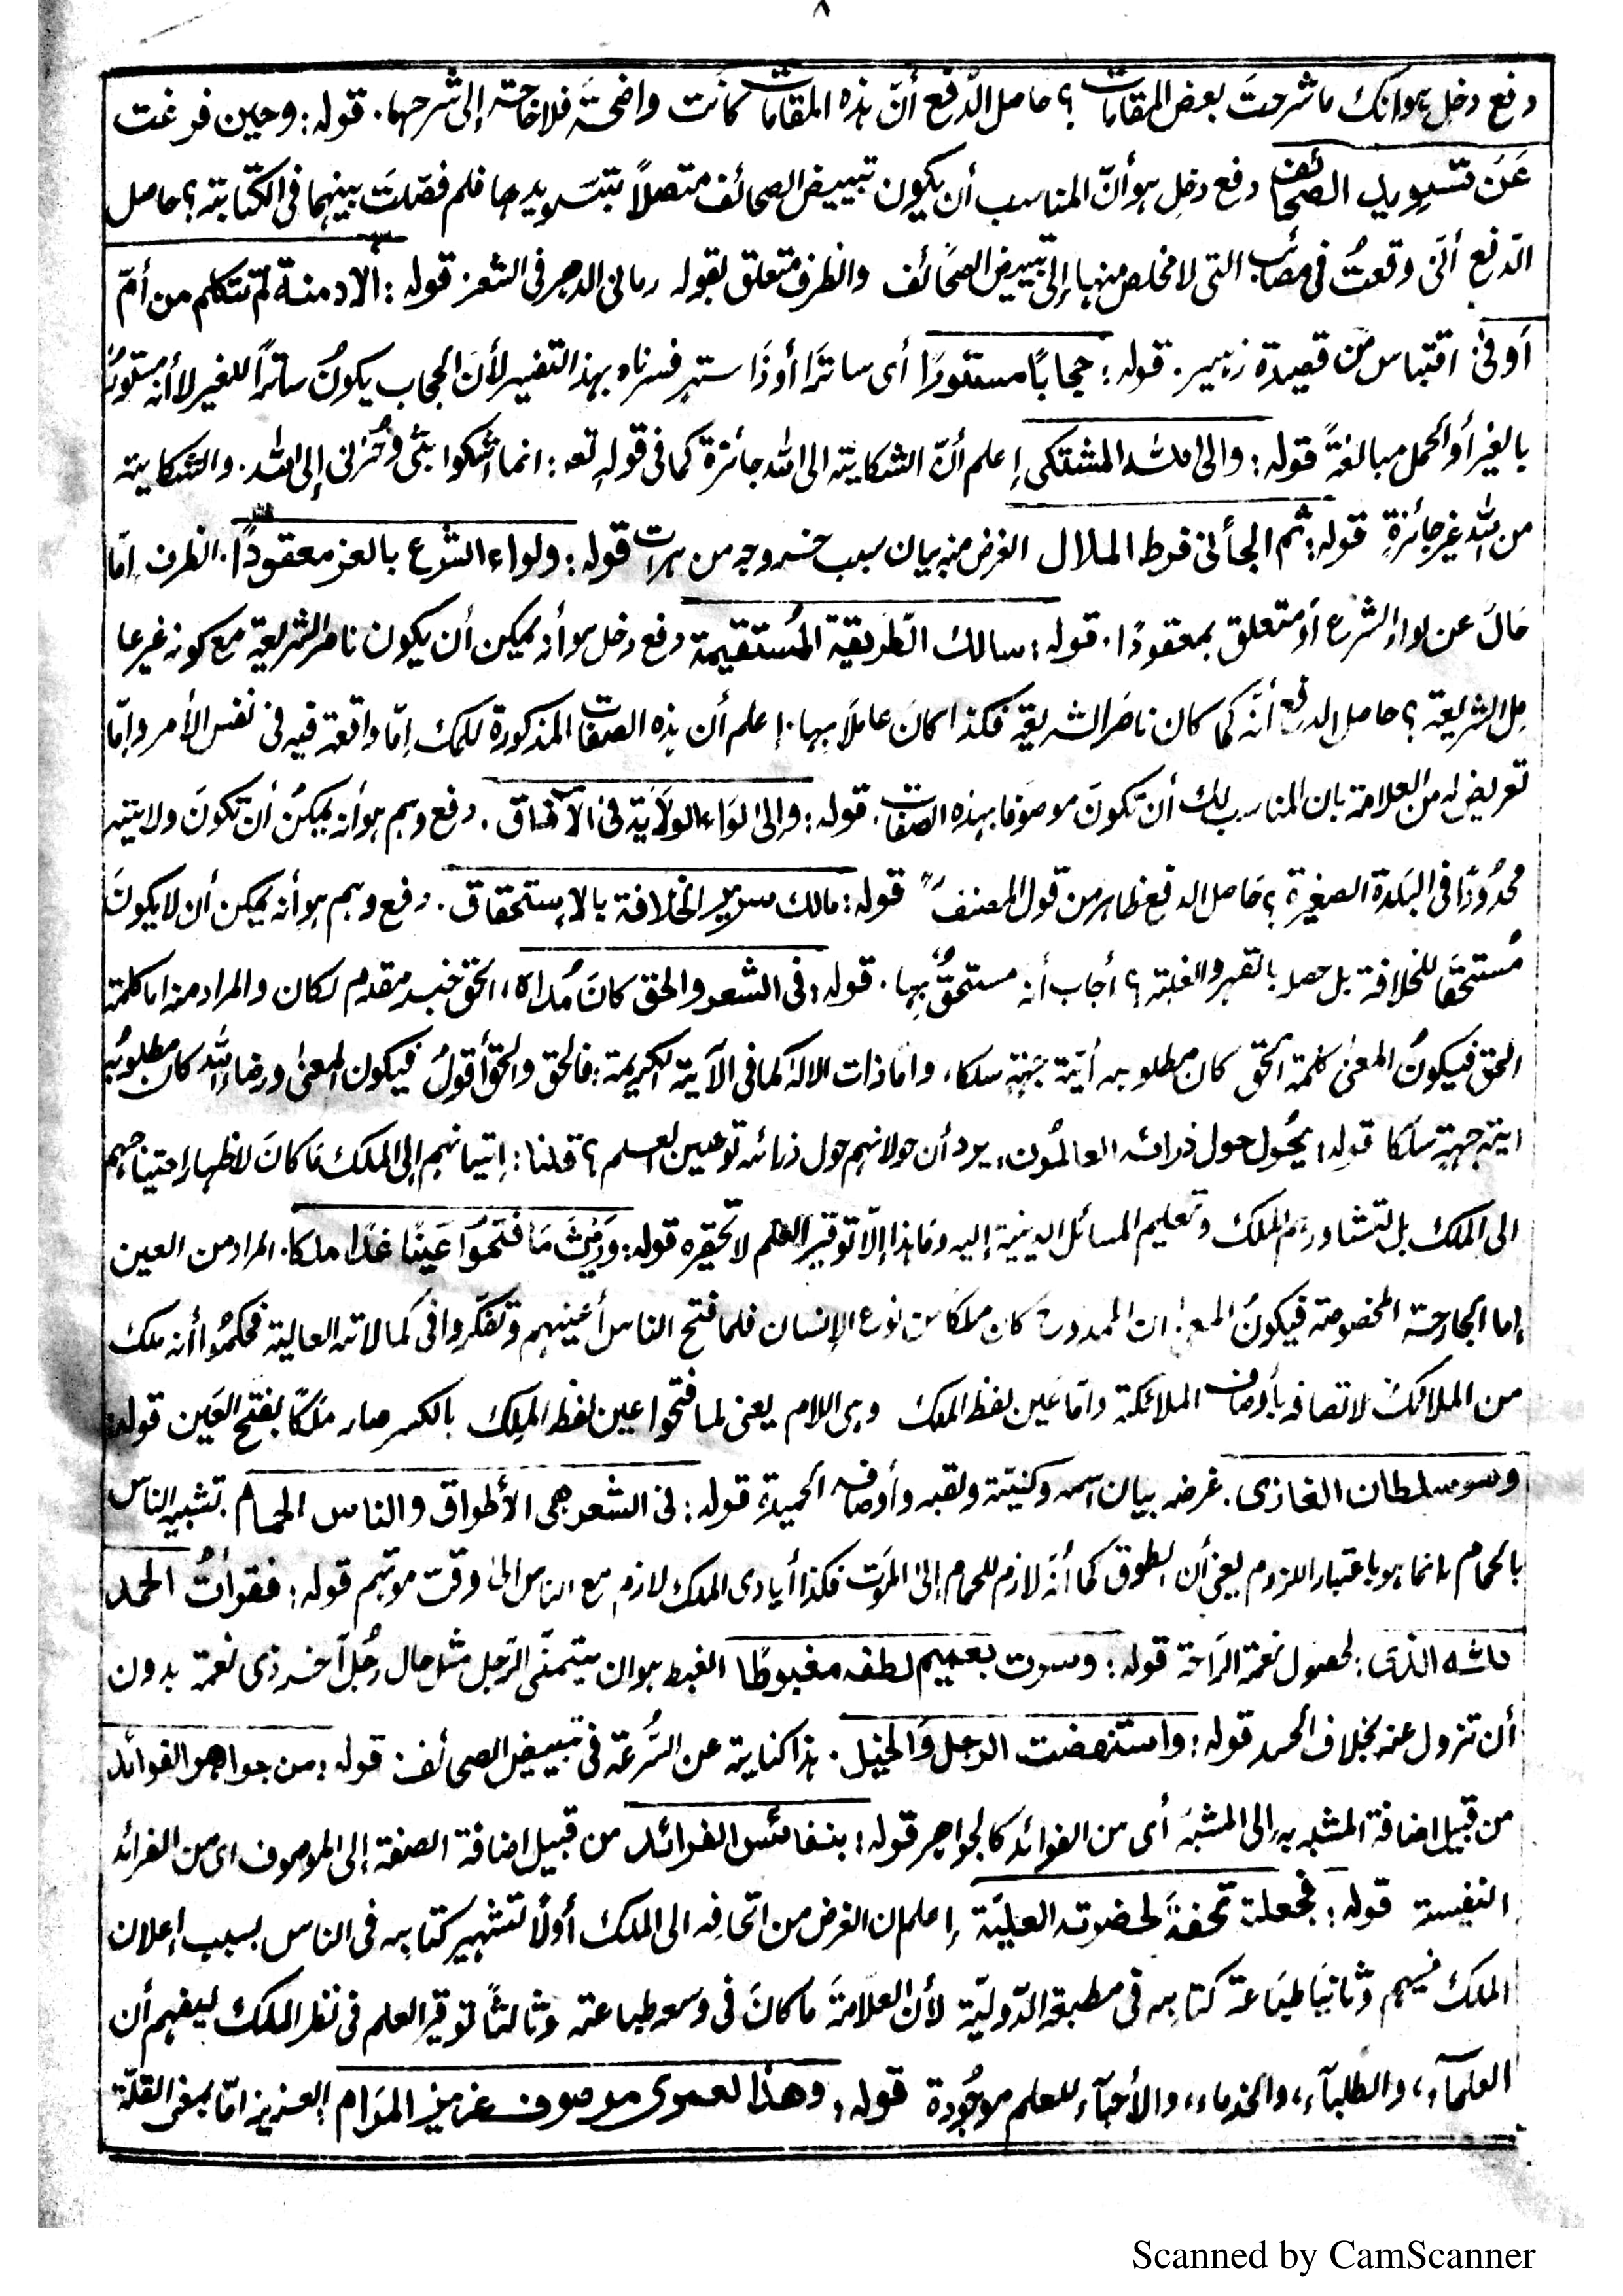 ٨
دفع دخل هو انك ما شرحتَ بعض المقامات؟ حاصل الدّفع أنّ هذه المقامات كانت واضحة فلا حاجة إلى شرحها. قوله: وحين فرغت
عَن تسويد الصحائف دفع دخل هو أنّ المناسب أن يكون تبييض الصحائف متصلاً بتسويدها فلم فصّلتَ بينهما فى الكتابة؟ حاصل
الدّفع أنّى وقعتُ فى مصائب التى لا مخلص منها إلى تبييض الصحائف والظرف متعلق بقوله رمانى الدهر فى الشعر قوله: ألا دمنة لم تتكلم من أمّ
أوفىٰ اقتباس من قصيدة زهير. قوله: حجاباً مستورًا أى ساترًا أو ذا ستر فسرناه بهذا التفسير لأن الحجاب يكونُ ساتراً للغير لا أنه مستورٌ
بالغير أو الحمل مبالغةً قوله: والى الله المشتكى إعلم أنّ الشكاية الى الله جائزة كما فى قوله تعـ: انما اشكوا بثّى وحُزنى إلى الله. والشكاية
من الله غير جائزةٍ قوله: ثم الجأنى فرط الملال الغرض منه بيان سبب خروجه من هرات قوله: ولواء الشرع بالعز معقودًا. الظرف إمّا
حَالَ عن لواء الشرع أو متعلق بمعقودًا. قوله: سالك الطّريقة المُستقيمة دفع دخل هو أنه يمكن أن يكون ناصر الشريعة مع كونه غير عا
مل الشريعة؟ حاصل الدفع أنّه كما كان ناصَر الشريعة فكذا كانَ عاملاً بها. إعلم أن هذه الصفات المذكورة للملك إمّا واقعة فيه فى نفس الأمر وإمّا
تعريض له من العلامة بان المناسب لك أن تكونَ موصوفا بهذه الصفات. قوله: والى لوَاء الولَايَة فى الآفاق. دفع وهم هو أنه يمكنُ أن تكونَ ولايته
محدُودًا فى البَلدة الصغيرة؟ حَاصل الدفع ظاهر من قول المصنفؒ قوله: مالك سرير الخلافة بالإستحقاق. دفع وهم هو أنه يمكن أن لا يكونَ
مُستحقا للخلافة بل حصل بالقهر والغلبة؟ أجاب أنه مستحقٌّ بها. قوله: فى الشعر والحق كانَ مُداه، الحق خبر مقدم لكان والمراد منه اما كلمة
الحق فيكونُ المعنىٰ كلمة الحق كان مطلوبه أيّة جهةٍ سلكا، واما ذات الالٰه كما فى الآية الكريمة: فالحق والحقّ أقولُ فيكون المعنىٰ ورضاء الله كان مطلوبُه
اية جهةٍ سلكا قوله: يحُول حول ذرائه العالمُون، يرد أن حولانهم حول ذرائه توهين لعلم؟ قلنا: إتيانهم إلى الملك مَا كانَ لاظهار احتياجهم
الى الملك بل لتشاورهم الملك وتعليم المسائل الدينية إليه ومَا هذا إلاّ توقير العلم لا تحقيره قوله: وَرَيْثَ مَا فتحُوا عَينًا غدَا ملكا. المراد من العين
إما الجارحة المخصوصة فيكونُ المعنىٰ ان الممدوح كان ملكا من نوع الإنسان فلما فتح الناس أعينهم وتفكّروا فى كمالاته العالية فحكمُوا أنه ملك
من الملائك لاتصافه بأوصاف الملائكة وامّا عَين لفظ الملك وهى اللام يعنى لما فتحوا عين لفظ المِلك بالكسر صار مَلَكًا بفتح العَين قوله:
وسوسلطان الغازى. غرضه بيان اسمه وكنيّته ولقبه وأوصافه الحميدة قوله: فى الشعر هى الأطواق والناس الحمام. تشبيه الناس
بالحمام انما هو باعتبار اللزوم يعنى أن الطوق كما أنّه لازم للحمام إلى المَوت فكذا أيادى الملك لازم مع الناس الىٰ وقت موتهم قوله: فقرأتُ الحمد
لله الذى: لحصول نعمة الرّاحة قوله: وسرت بعميم لطفه مغبوطًا الغبط هو ان يتمنّى الرّجل مثل حال رجُل آخر ذى نعمة بدون
أن تزول عنه بخلاف الحسد قوله: واستنهضت الرجل وَالخيل. هذا كناية عن السُّرعة فى تبييض الصحائف قوله: من جواهر الفوائد
من قبيل اضافة المشبه به إلى المشبّه أى من الفوائد كالجواهر قوله: بنفائس الفرائد من قبيل اضافة الصفة إلى الموصوف اى من الفرائد
النفيسة قوله: فجعلته تحفةً لحضرته العليّة إعلم ان الغرض من اتحافه الى الملك أولًا تشهير كتابه فى الناس بسبب إعلان
الملك فيهم وثانيًا طبَاعة كتابه فى مطبعة الدّوليّة لأن العلامةَ ما كانَ فى وسعه طباعته وثالثًا توقير العلم فى نظر الملك ليفهم أن
العلمآء، والطلبآء، والخدماء، والأحبآء للعلم موجُودة قوله: وهذا لعمرى موصوف عزيز المَرَام العزيز امّا بمعنى القلّة
Scanned by CamScanner